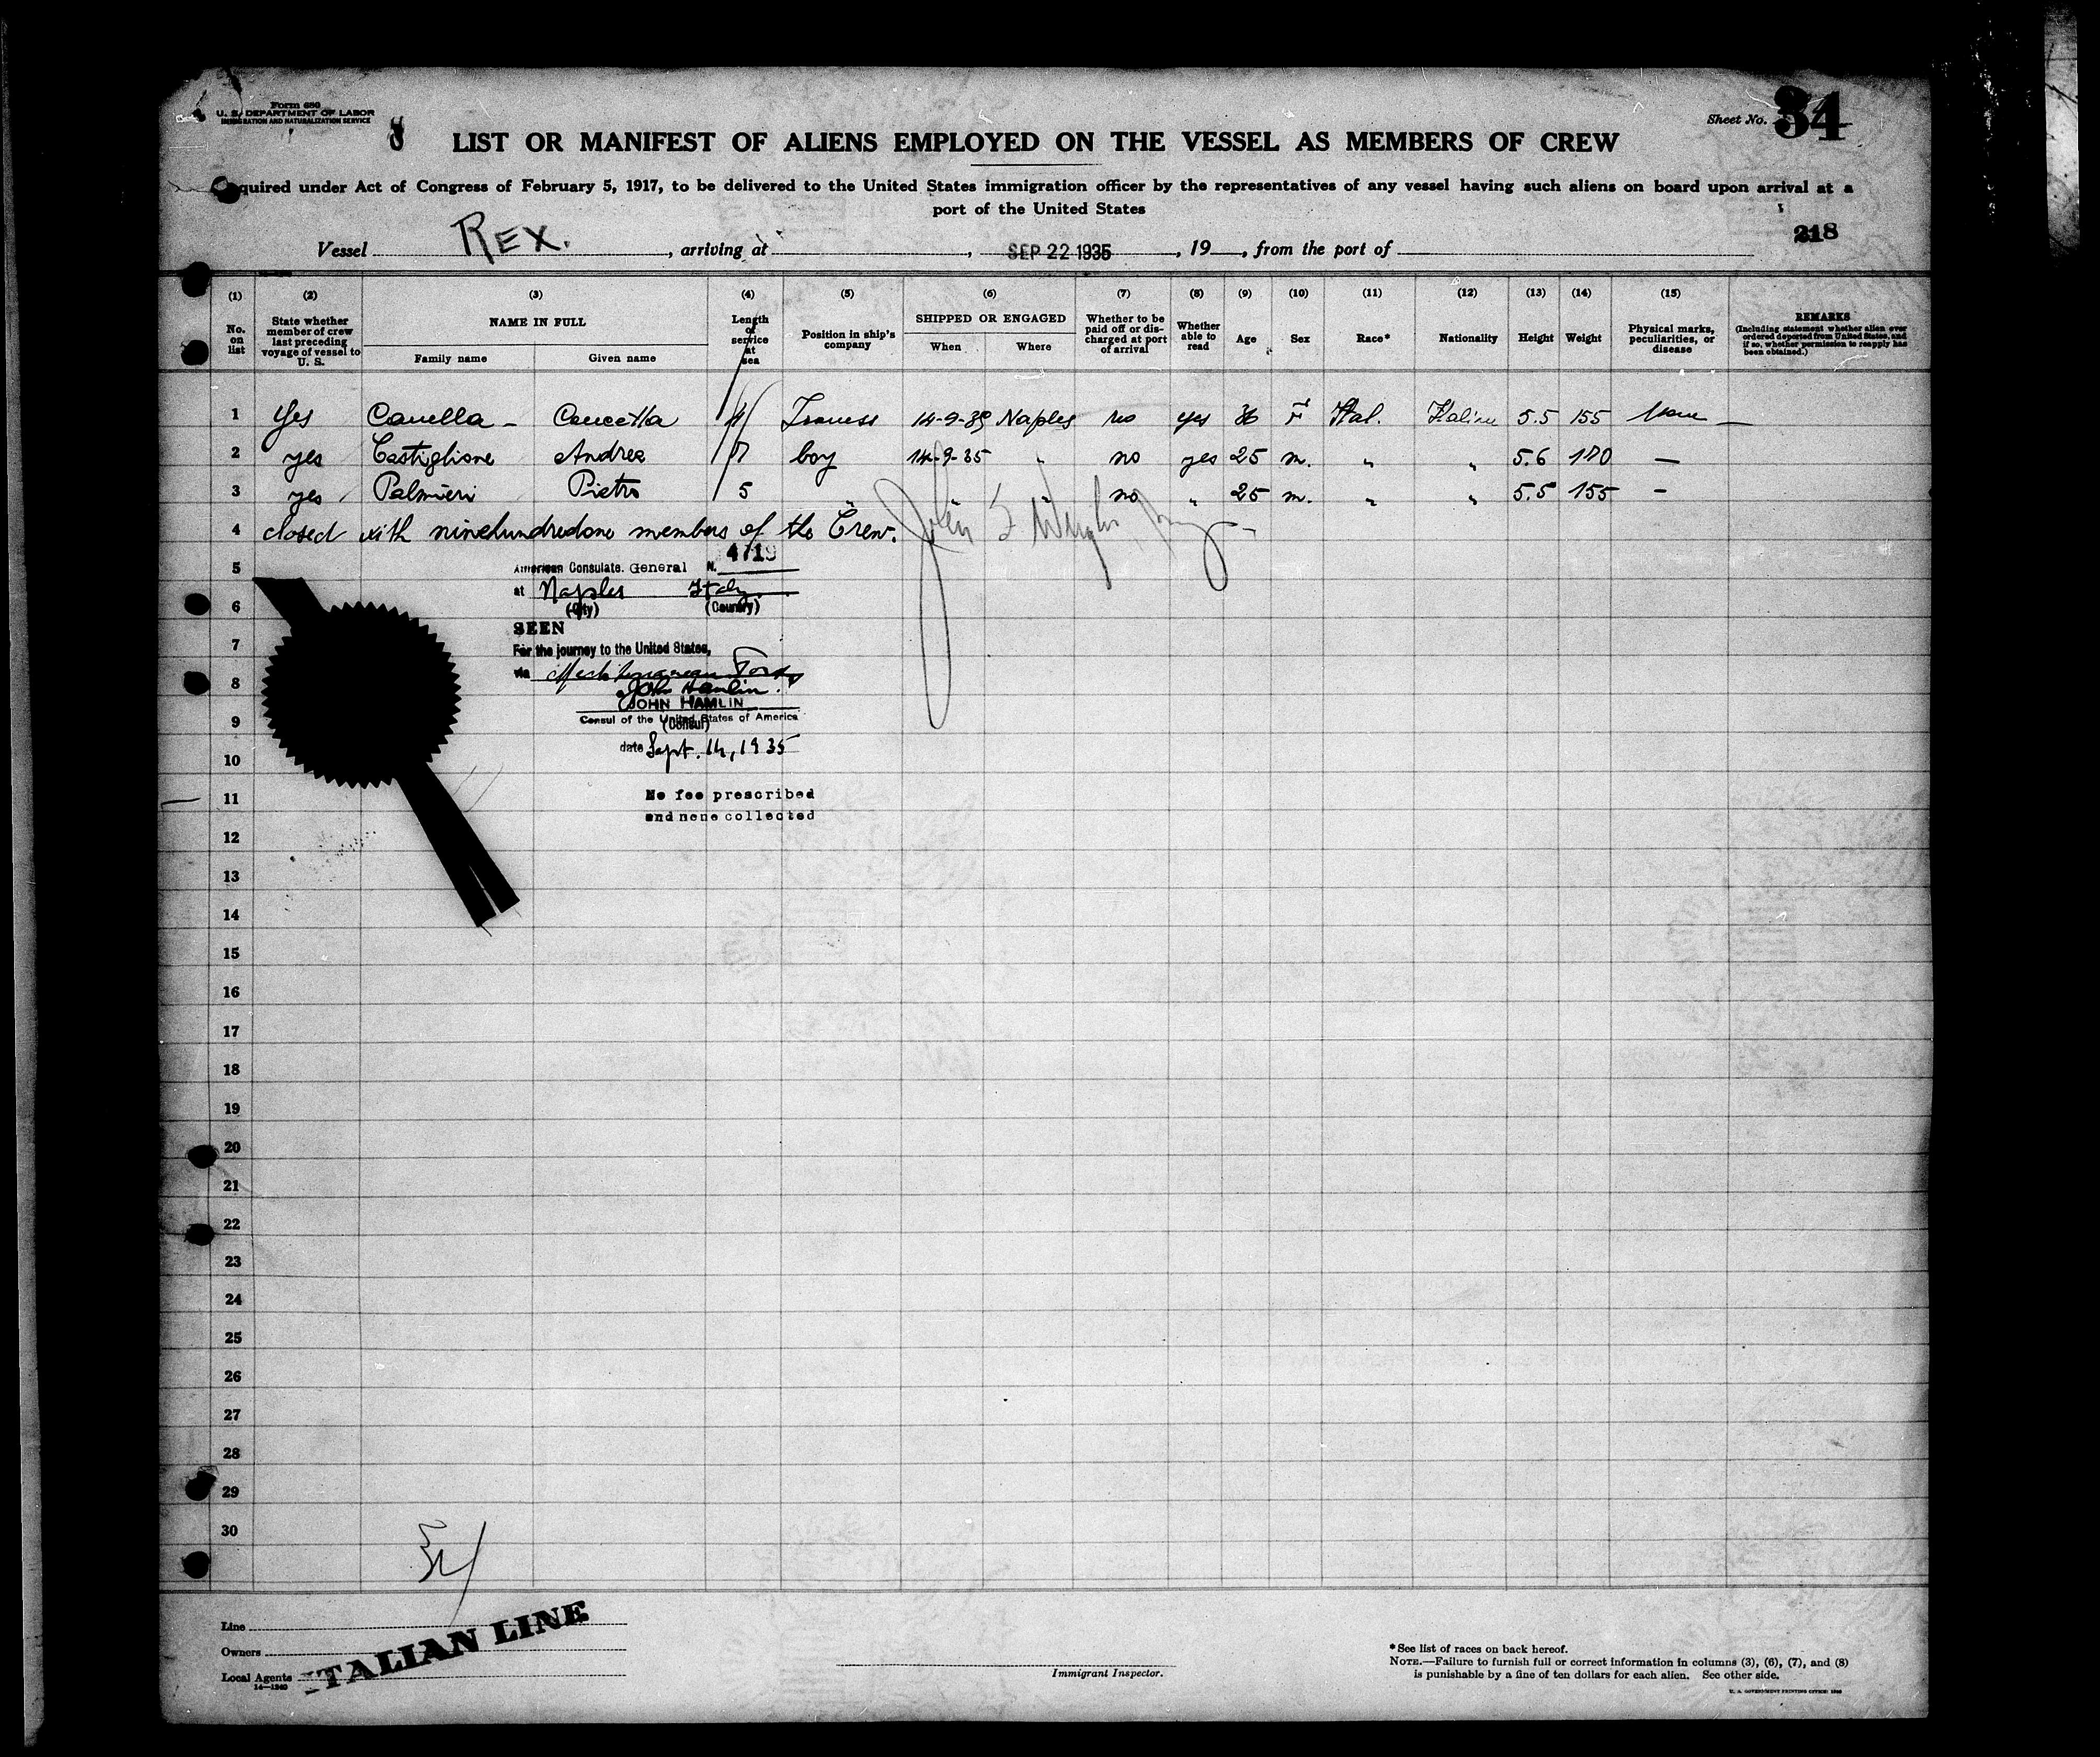 Form 680
U. S. DEPARTMENT OF LABOR
IMMIGRATION AND NATURALIZATION SERVICE
Sheet No. 34
LIST OR MANIFEST OF ALIENS EMPLOYED ON THE VESSEL AS MEMBERS OF CREW
quired under Act of Congress of February 5, 1917, to be delivered to the United States immigration officer by the representatives of any vessel having such aliens on board upon arrival at a
port of the United States
218
Vessel REX. , arriving at , SEP 22 1935 , 19 , from the port of
(1) (2) (3) (4) (5) (6) (7) (8) (9) (10) (11) (12) (13) (14) (15)
No. on list
State whether member of crew last preceding voyage of vessel to U. S.
NAME IN FULL
Family name Given name
Length of service at sea
Position in ship's company
SHIPPED OR ENGAGED
When Where
Whether to be paid off or discharged at port of arrival
Whether able to read
Age Sex Race* Nationality Height Weight
Physical marks, peculiarities, or disease
REMARKS
(Including statement whether alien ever ordered deported from United States, and if so, whether permission to reapply has been obtained.)
1 Yes Canella - 14-9-35 Naples no yes 36 F Ital. Italian 5.5 155 None —
2 yes Castiglione Andrea 7 boy 14-9-35 " no yes 25 m. " " 5.6 170 —
3 yes Palmieri Pietro 5 " " " no " 25 m. " " 5.5 155 -
4 closed with ninehundredone members of the Crew.
John
4719
American Consulate. General N.
5
at Naples Italy
(City) (Country)
6
SEEN
7
For the journey to the United States,
via Mediterranean Ports
8
John Hamlin
JOHN HAMLIN
Consul of the United States of America
(Consul)
9
date Sept. 14, 1935
10
No fee prescribed
11
and none collected
12
13
14
15
16
17
18
19
20
21
22
23
24
25
26
27
28
29
30
Line
Owners
Local Agents
14—1240
ITALIAN LINE
Immigrant Inspector.
*See list of races on back hereof.
NOTE.—Failure to furnish full or correct information in columns (3), (6), (7), and (8)
is punishable by a fine of ten dollars for each alien. See other side.